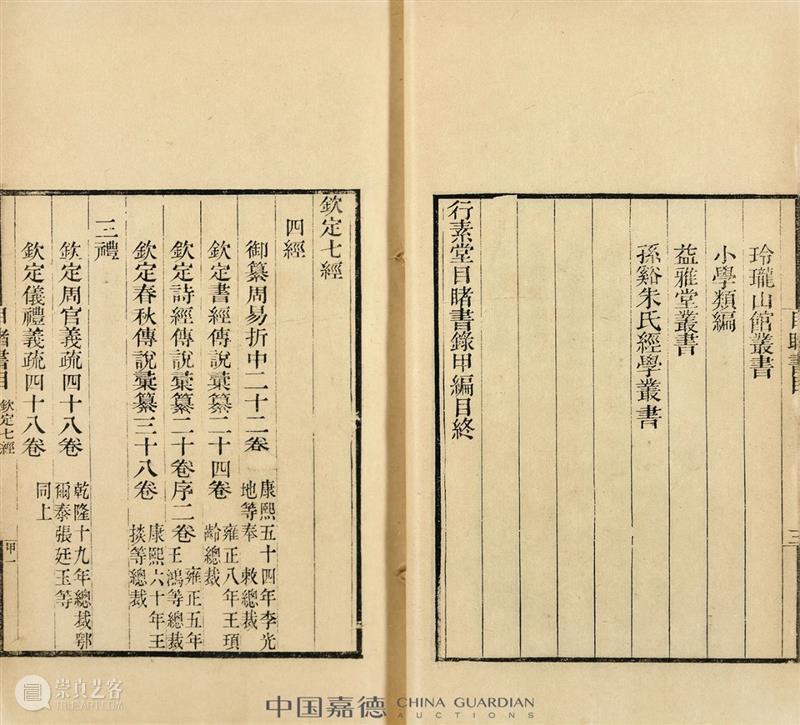 玲瓏山館叢書
小學類編
益雅堂叢書
孫谿朱氏經學叢書
行素堂目睹書錄甲編目終
欽定七經
四經
御纂周易折中二十二卷 康熙五十四年李光地等奉 敕總裁
欽定書經傳說彙纂二十四卷 雍正八年王頊齡總裁
欽定詩經傳說彙纂二十卷序二卷 雍正五年王鴻等總裁
欽定春秋傳說彙纂三十八卷 康熙六十年王掞等總裁
三禮
欽定周官義疏四十八卷 乾隆十九年總裁鄂爾泰張廷玉等
欽定儀禮義疏四十八卷 同上
目睹書目 欽定七經 甲一
崇真艺客
中国嘉德 CHINA GUARDIAN
AUCTIONS